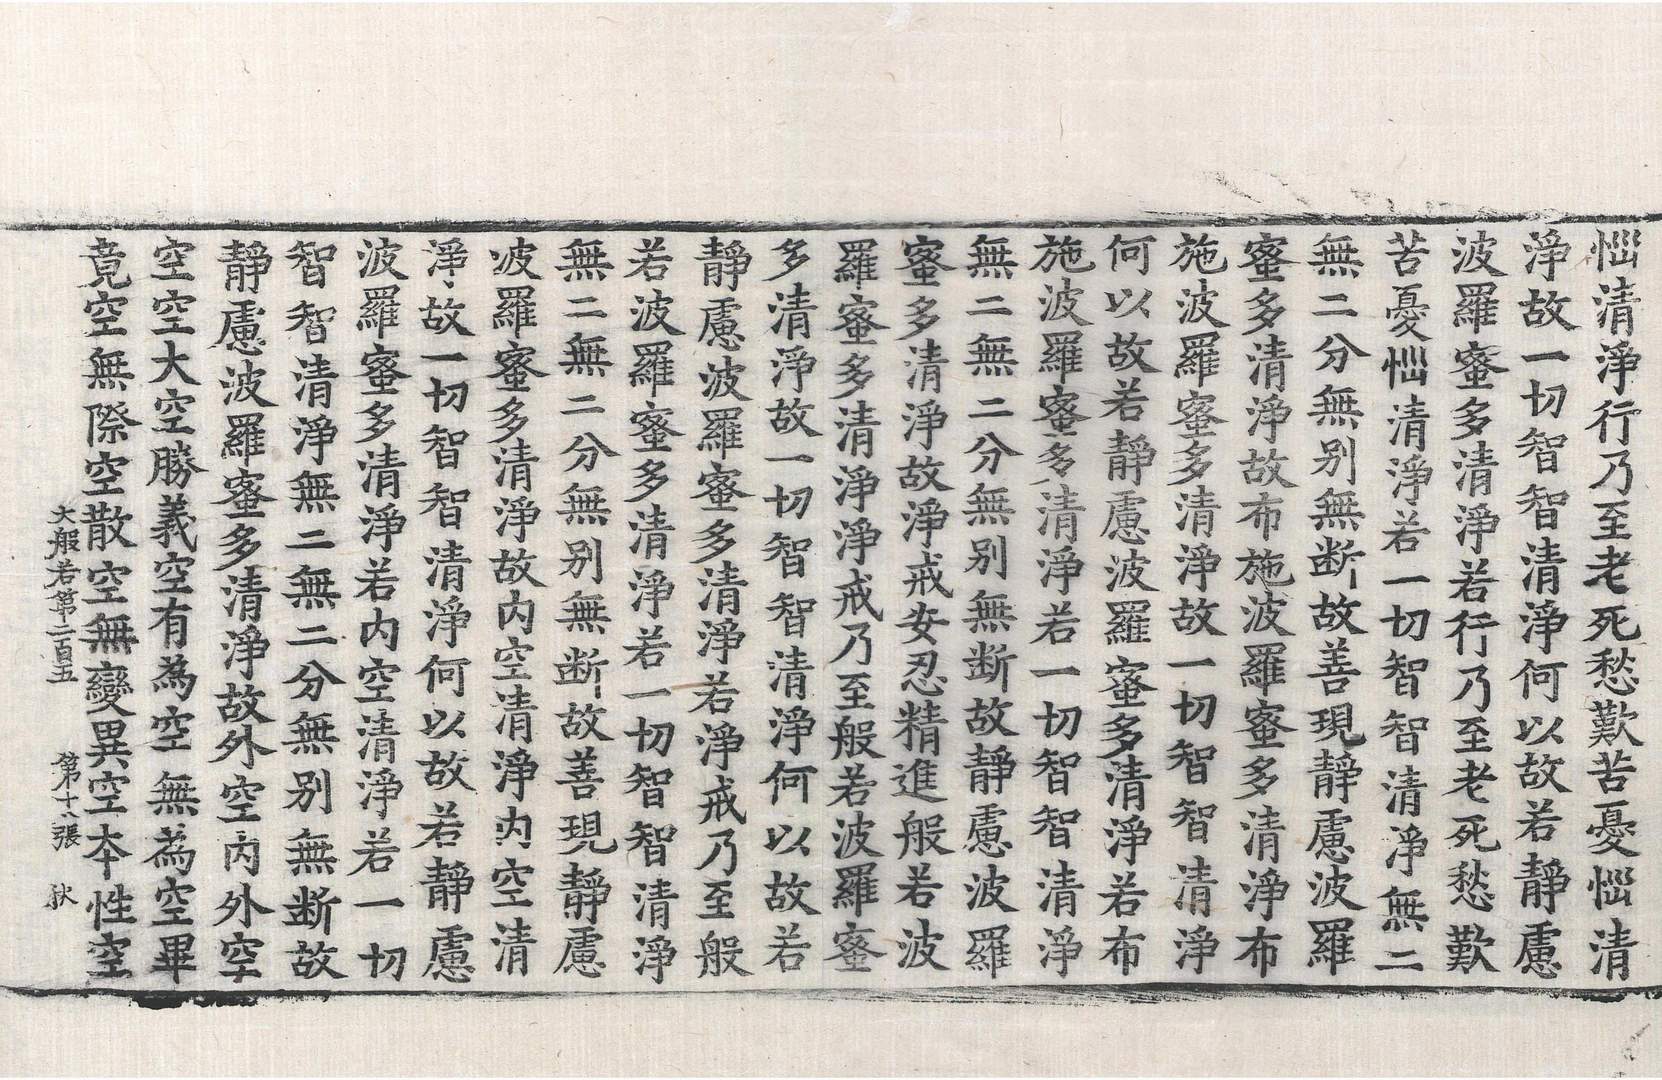 惱清淨行乃至老死愁歎苦憂惱清
淨故一切智智清淨何以故若靜慮
波羅蜜多清淨若行乃至老死愁歎
苦憂惱清淨若一切智智清淨無二
無二分無別無斷故善現靜慮波羅
蜜多清淨故布施波羅蜜多清淨布
施波羅蜜多清淨故一切智智清淨
何以故若靜慮波羅蜜多清淨若布
施波羅蜜多清淨若一切智智清淨
無二無二分無別無斷故靜慮波羅
蜜多清淨故淨戒安忍精進般若波
羅蜜多清淨淨戒乃至般若波羅蜜
多清淨故一切智智清淨何以故若
靜慮波羅蜜多清淨若淨戒乃至般
若波羅蜜多清淨若一切智智清淨
無二無二分無別無斷故善現靜慮
波羅蜜多清淨故內空清淨內空清
淨故一切智智清淨何以故若靜慮
波羅蜜多清淨若內空清淨若一切
智智清淨無二無二分無別無斷故
靜慮波羅蜜多清淨故外空內外空
空空大空勝義空有為空無為空畢
竟空無際空散空無變異空本性空
大般若第二百五 第十八張 秋